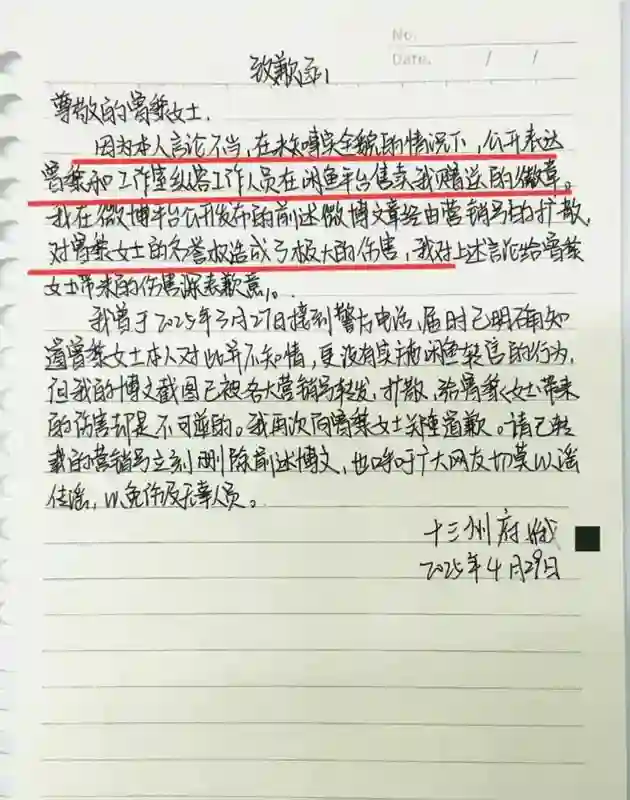 No.
Date. / /
致歉函
尊敬的曾黎女士.
因为本人言论不当,在未知晓全貌的情况下,公开表达
曾黎和工作室纵容工作人员在闲鱼平台售卖我赠送的徽章。
我在微博平台公开发布的前述微博文章经由营销号的扩散,
对曾黎女士的名誉权造成了极大的伤害,我对上述言论给曾黎
女士带来的伤害深表歉意。
我曾于2025年3月27日接到警方电话,届时已明确知
道曾黎女士本人对此并不知情,更没有实施闲鱼转售的行为,
但我的博文截图已被各大营销号转发,扩散,给曾黎女士带来
的伤害却是不可逆的。我再次向曾黎女士郑重道歉。请已转
载的营销号立刻删除前述博文,也呼吁广大网友切莫以谣
传谣,以免伤及无辜人员。
十三州府
2025年4月29日